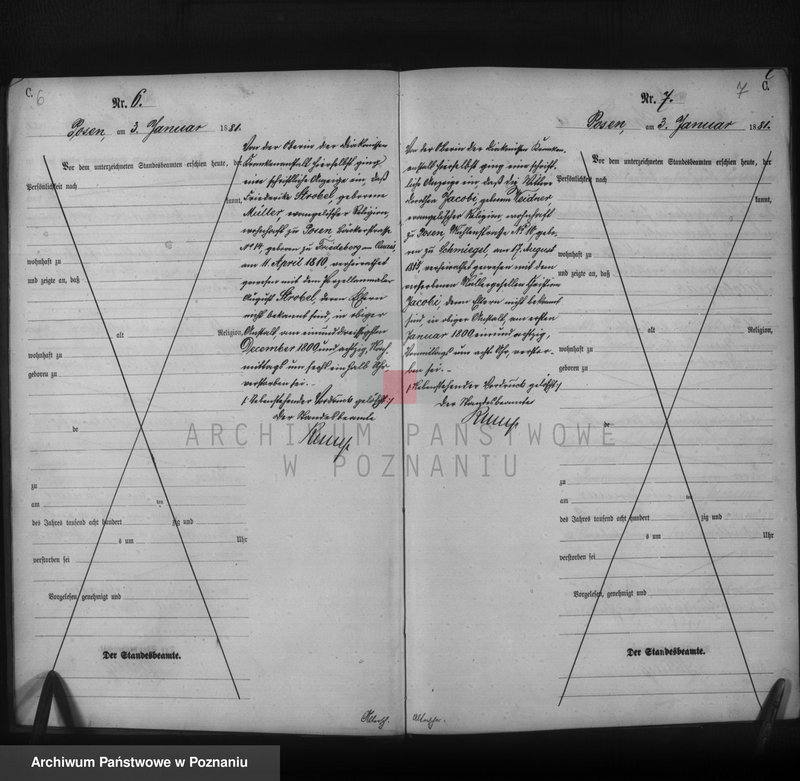 C.
6
Nr. 6.
Posen, am 3. Januar 1881.
Vor dem unterzeichneten Standesbeamten erschien heute, der
Persönlichkeit nach
kannt,
wohnhaft zu
und zeigte an, daß
alt Religion,
wohnhaft zu
geboren zu
de
zu
am ten
des Jahres tausend acht hundert zig und
s um Uhr
verstorben sei
Vorgelesen, genehmigt und
Der Standesbeamte.
Von der Oberin der Diakonissen
Krankenanstalt hierselbst ging
eine schriftliche Anzeige ein, daß
Friederike Strobel, geborene
Müller, evangelischer Religion,
wohnhaft zu Posen, Bäckerstraße
No 14, geboren zu Friedeberg am Queis,
am 11 April 1810, verheirathet
gewesen mit dem Porzellanmaler
August Strobel, deren Eltern
nicht bekannt sind, in obiger
Anstalt, am einunddreißigsten
December 1800 und achtzig, Nach-
mittags um sechs einhalb Uhr
verstorben sei. -
/: Nebenstehender Vordruck gelöscht :/
Der Standesbeamte
7
C.
Nr. 7.
Posen, am 3. Januar 1881.
Von der Oberin der Diakonissen Kranken-
anstalt hierselbst ging eine schrift-
liche Anzeige ein, daß die Wittwe
Dorothea Jacobi, geborne Weidner,
evangelischer Religion, wohnhaft
zu Posen, No 10, gebo-
ren zu Schmiegel, am 17. August
1815, verheirathet gewesen mit dem
verstorbenen Müllergesellen Christian
Jacobi, deren Eltern nicht bekannt
sind, in obiger Anstalt, am ersten
Januar 1800 einund achtzig,
Vormittags um acht Uhr, verstor-
ben sei. -
/: Nebenstehender Vordruck gelöscht :/
Der Standesbeamte
Vor dem unterzeichneten Standesbeamten erschien heute, der
Persönlichkeit nach
kannt,
wohnhaft zu
und zeigte an, daß
alt Religion,
wohnhaft zu
geboren zu
de
zu
am ten
des Jahres tausend acht hundert zig und
s um Uhr
verstorben sei
Vorgelesen, genehmigt und
Der Standesbeamte.
ARCHIWUM PAŃSTWOWE
W POZNANIU
Archiwum Państwowe w Poznaniu